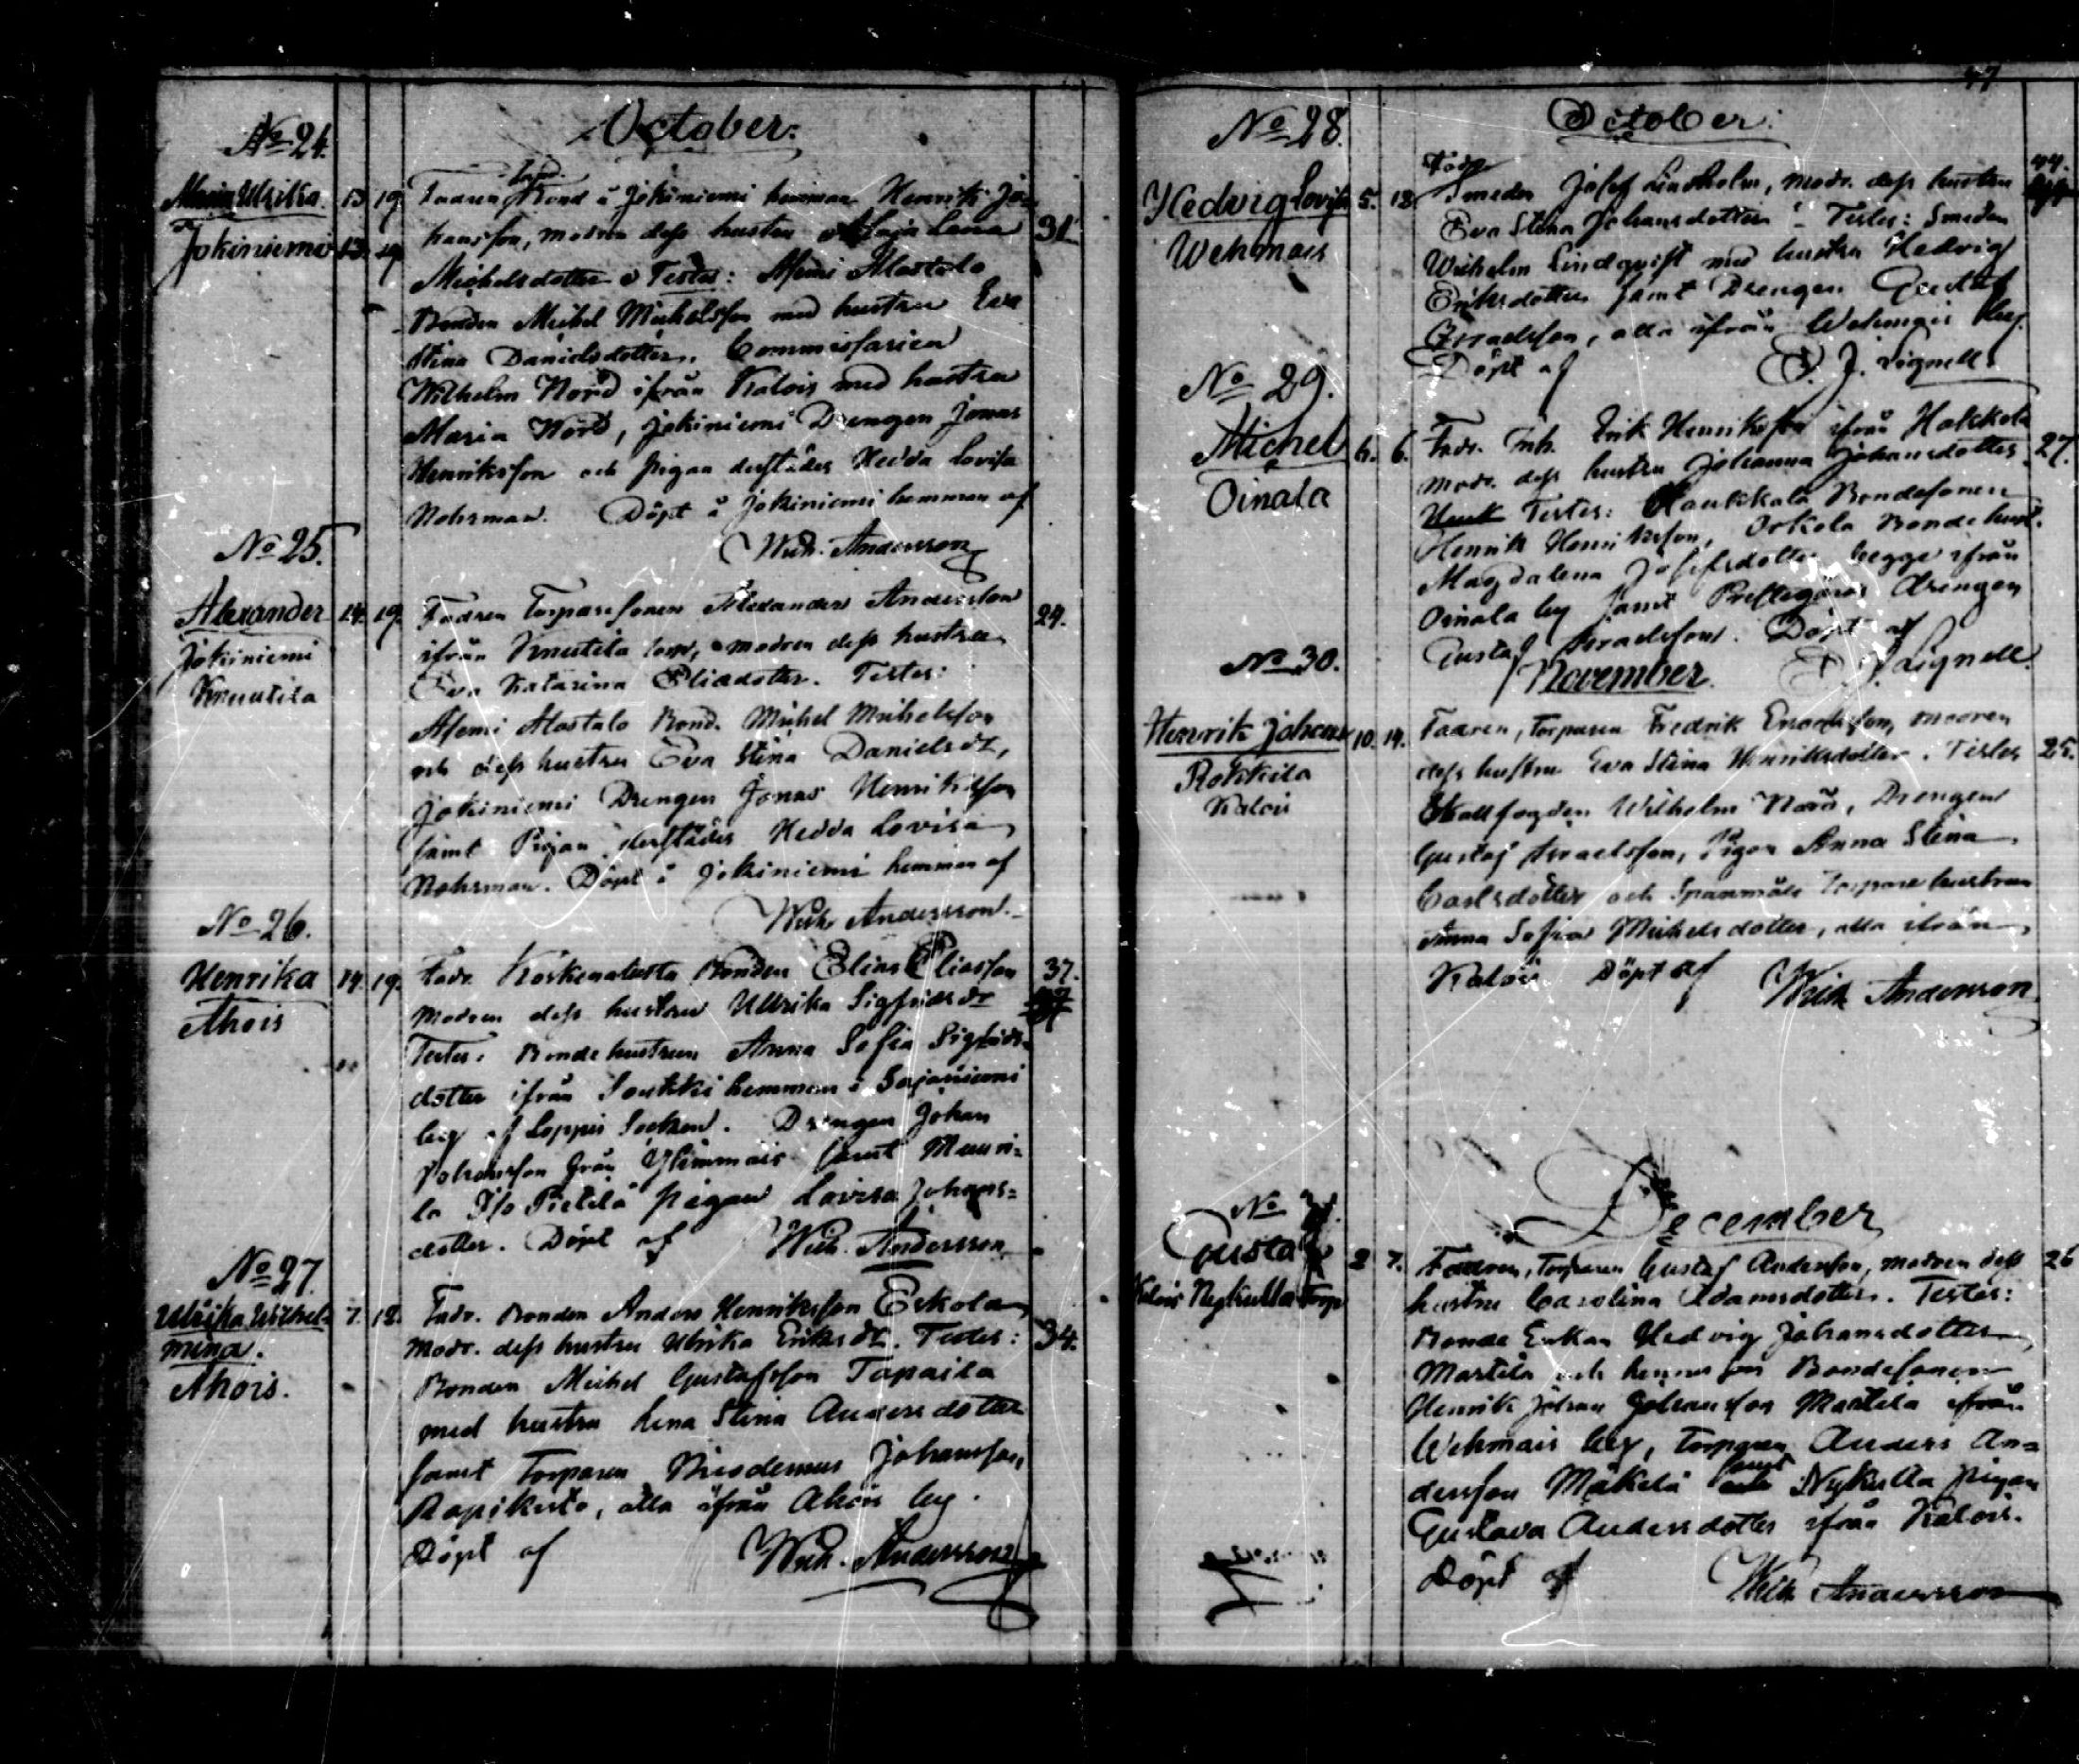 October.
No 24.
Maria Ulrika. 13 19 Fadren Bond å Jokiniemi hemman Henrik Jo-
Jokiniemi 13. 19. hansson, modren dess hustru Maja Lena 31
Michelsdotter Testes: Alastalo
Bonden Michel Michelsson med hustru Eva
Stina Danielsdotter. Commissarien
Wilhelm Nord ifrån Kalois med hustru
Maria Nord, Jokiniemi Drengen Jonas
Henriksson och pigan derstädes Hedda Lovisa
Nohrman. Döpt å Jokiniemi hemman af
Wilh. Andersson
No 25.
Alexander 14. 19. Fadren Torparesonen Alexander Andersson 24.
Jokiniemi ifrån Knutila torp, modren dess hustru
Knuutila Eva Katarina Eliedotter. Testes:
Alastalo Bond. Michel Michelsson
och dess hustru Eva Stina Danielsdt,
Jokiniemi Drengen Jonas Henriksson
samt Pigan derstädes Hedda Lovisa
Nohrman. Döpt å Jokiniemi hemman af
Wilh Andersson.
No 26.
Henrika 14. 19. Fadr. Koskenalusta Bonden Elias Eliasson 37.
Ahois modren dess hustru Ullrika Sigfridsdr
Testes: Bondehustrun Anna Sofia Sigfrids-
dotter ifrån Soukki hemman i Sajaniemi
by af Loppis Socken. Drengen Johan
Johansson från samt Mauri-
la Iso Pietilä pigan Lovisa Johans=
dotter. Döpt af Wilh. Andersson
No 27.
Ulrika Wilhel- 7. 12. Fadr. Bonden Anders Henriksson Erkola,
mina. modr. dess hustru Ulrika Eriksdt. Testes: 34.
Ahois. Bonden Michel Gustafsson Tapaila
med hustru Lena Stina Andersdotter
samt Torparen Johansson,
Rapikisto, alla ifrån Ahois by.
Döpt af Wilh. Andersson
47
October.
No 28.
Hedvig Lovisa 5. 12 Smeden Josef Lindholm, modr. dess hustru 44.
Wehmais Eva Stina Johansdotter Testes: Smeden
Wilhelm Lindqvist med hustru Hedvig
Eriksdotter samt Drengen Gustaf
Israelsson, alla ifrån Wehmais by.
Döpt af J. Lignell
No 29.
Michel 6. 6. Fadr. Inh. Erik Henriksson ifrån Hakkola 27.
Oinala modr. dess hustru Johanna Johansdotter
Testes: Haukkala Bondesonen
Henrik Henriksson, Orkola Bondehust.
Magdalena Josefsdotter begge ifrån
Oinala by samt Prestegårds drengen
Gustaf Israelsson. Döpt af
J. Lignell
No 30.
November
Henrik Johan 10. 14. Fadren, Torparen Fredrik Enochsson, modren
Rokkila dess hustru Eva Stina Henriksdotter. Testes 25.
Kalois Wilhelm Nord, Drengen
Gustaf Israelsson, Pigan Anna Stina
Carlsdotter och Torparehustrun
Anna Sofia Michelsdotter, alla ifrån
Kalois Döpt af Wilh Andersson
December
No 31.
Gustaf 2 7. Fadren, Torparen Gustaf Andersson, modren dess 26
Kalois Nykulla Torp hustru Carolina Adamsdotter. Testes:
Bonde Enkan Hedvig Johansdotter
Martila och hennes son Bondesonen
Henrik Johan Johansson Martila ifrån
Wehmais by, Torparen Anders An=
dersson Mäkelä samt Nykulla pigan
Gustava Andersdotter ifrån Kalois.
Döpt af Wilh Andersson